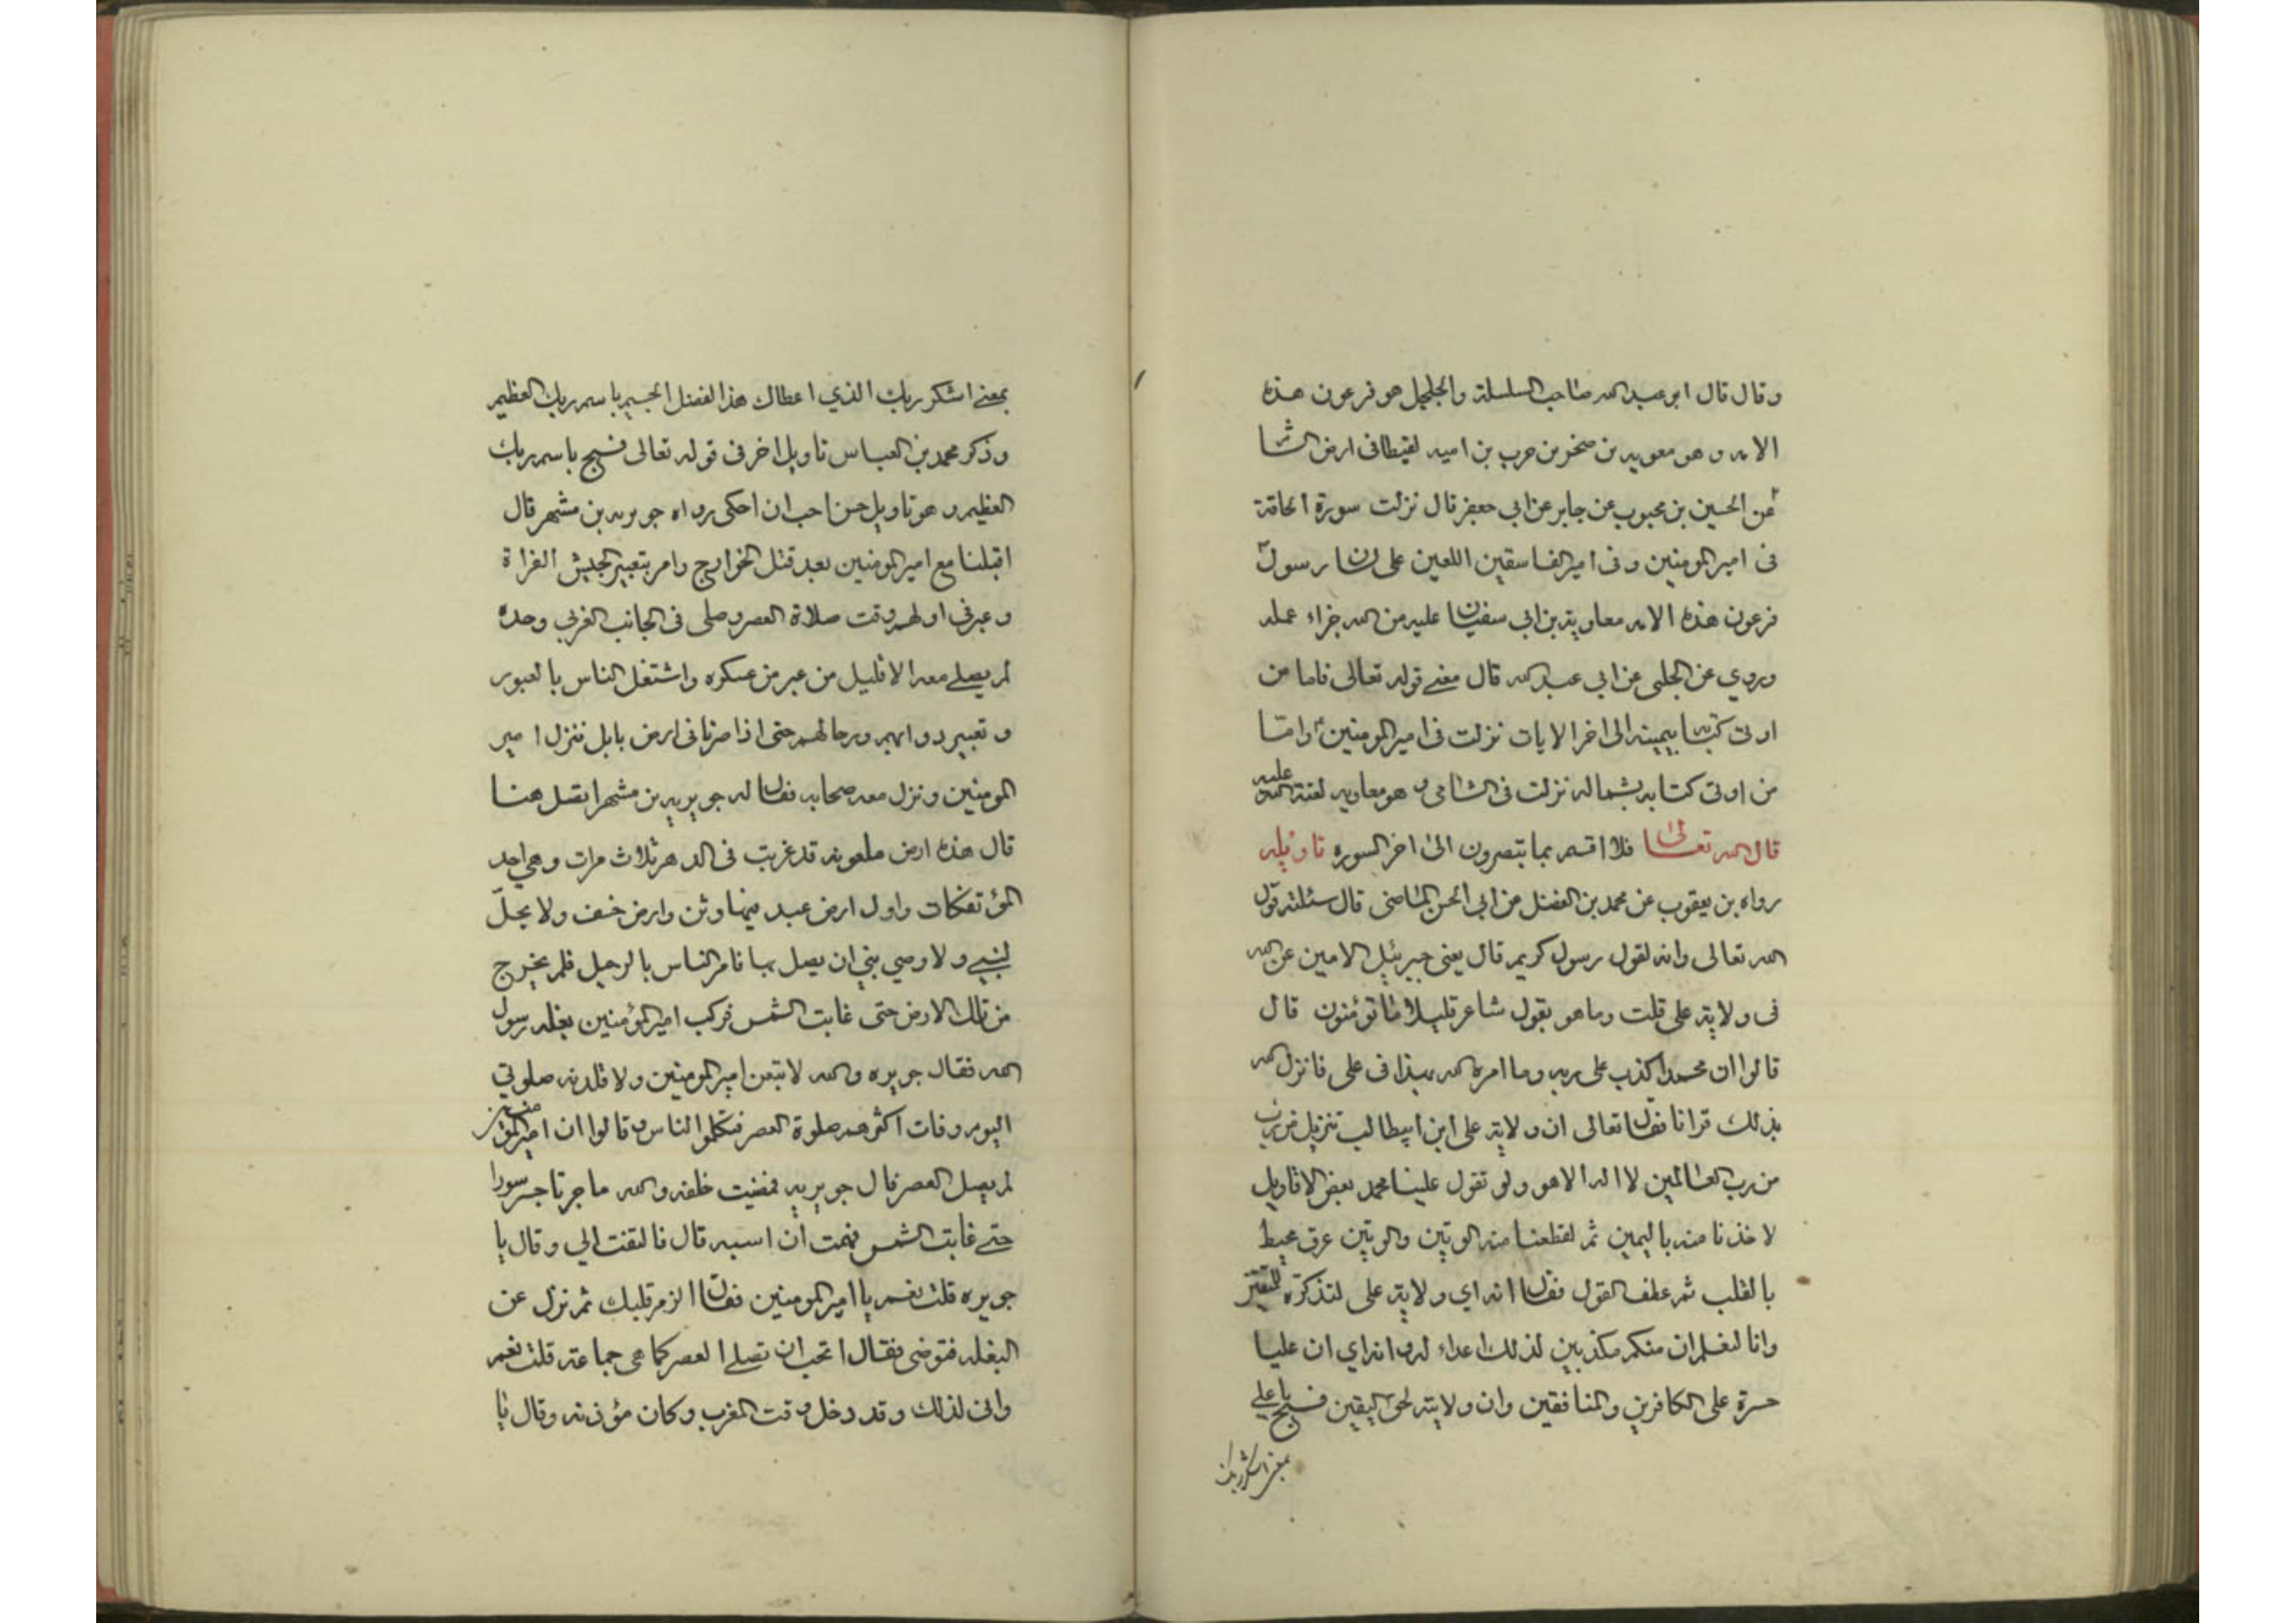 وقال قال ابو عبد الله صاحب السلسلة والجليل هو فرعون هذه
الامه و هو معويه بن صخر بن حرب بن اميه لقيطا فى ارض الشا
عن الحسين بن محبوب عن جابر عن ابي جعفر قال نزلت سورة الحاقة
فى امير المومنين و فى امير الفاسقين اللعين على لسان رسول
فرعون هذه الامه معاوية بن ابي سفيان عليه من الله جزاء عمله
وروي عن الحلبي عن ابي عبد الله قال معنى قوله تعالى فاما من
اوتى كتابه بيمينه الى اخر الايات نزلت فى امير المومنين واما
من اوتى كتابه بشماله نزلت فى الشامى و هو معاويه لعنة الله عليه
قال الله تعالى فلا اقسم بما تبصرون الى اخر السوره تاويله
رواه بن يعقوب عن محمد بن الفضل عن ابي الحسن الماضى قال سئلته قول
الله تعالى وانه لقول رسول كريم قال يعنى جبرئيل الامين عن الله
فى ولاية على قلت وما هو بقول شاعر قليلا ما تؤمنون قال
قالوا ان محمدا كذب على ربه وما امره الله بهذا فى على فانزل الله
بذلك قرانا فقال تعالى ان ولاية على ابن ابيطالب تنزيل من رب
من رب العالمين لا اله الا هو ولو تقول علينا محمد بعض الاقاويل
لاخذنا منه باليمين ثم لقطعنا منه الوتين والوتين عرق محيط
بالقلب ثم عطف القول فقال انه اي ولاية على لتذكرة للمتقين
وانا لنعلم ان منكم مكذبين لذلك اعداء له وانه اي ان عليا
حسرة على الكافرين والمنافقين وان ولايته لحق اليقين فسبح يا على
بمعنى اشكر ربك
بمعنى اشكر ربك الذي اعطاك هذا الفضل الجسيم باسم ربك العظيم
وذكر محمد بن العباس تاويل اخر فى قوله تعالى فسبح باسم ربك
العظيم و هو تاويل حسن احب ان احكى رواه جويريه بن مشهر قال
اقبلنا مع امير المومنين بعد قتل الخوارج وامر بتعبير الجيش الفراة
وعبر فى اولهم وقت صلاة العصر وصلى فى الجانب الغربي وحده
لم يصلے معه الا قليل من عبر من عسكره واشتغل الناس بالعبور
و تعبير دوابهم ورحالهم حتى اذا صرنا فى ارض بابل فنزل امير
المومنين ونزل معه صحابه فقال له جويريه بن مشهر انصل هنا
قال هذه ارض ملعونه قد غربت فى الدهر ثلاث مرات وهي احد
المؤتفكات واول ارض عبد فيها وثن وارض خسف ولا يحلّ
لنبى ولا وصي نبي ان يصل بها فامر الناس بالرحيل فلم يخرج
من تلك الارض حتى غابت الشمس فركب امير المؤمنين بغله رسول
الله فقال جويره والله لاتبعن امير المومنين ولاقلدنه صلوتي
اليوم وفات اكثرهم صلوة العصر فتكلموا الناس و قالوا ان امير المؤمنين
لم يصل العصر قال جويريه فمضيت خلفه والله ما جرنا جسر سورا
حتى غابت الشمس فهمت ان اسبه قال فالتفت الي وقال يا
جويره قلت نعم يا امير المومنين فقال الزم قلبك ثم نزل عن
البغله فتوضى فقال اتحب ان تصلے العصر كما هى جماعته قلت نعم
وانى لذلك وقد دخل وقت المغرب وكان مؤذنه وقال يا